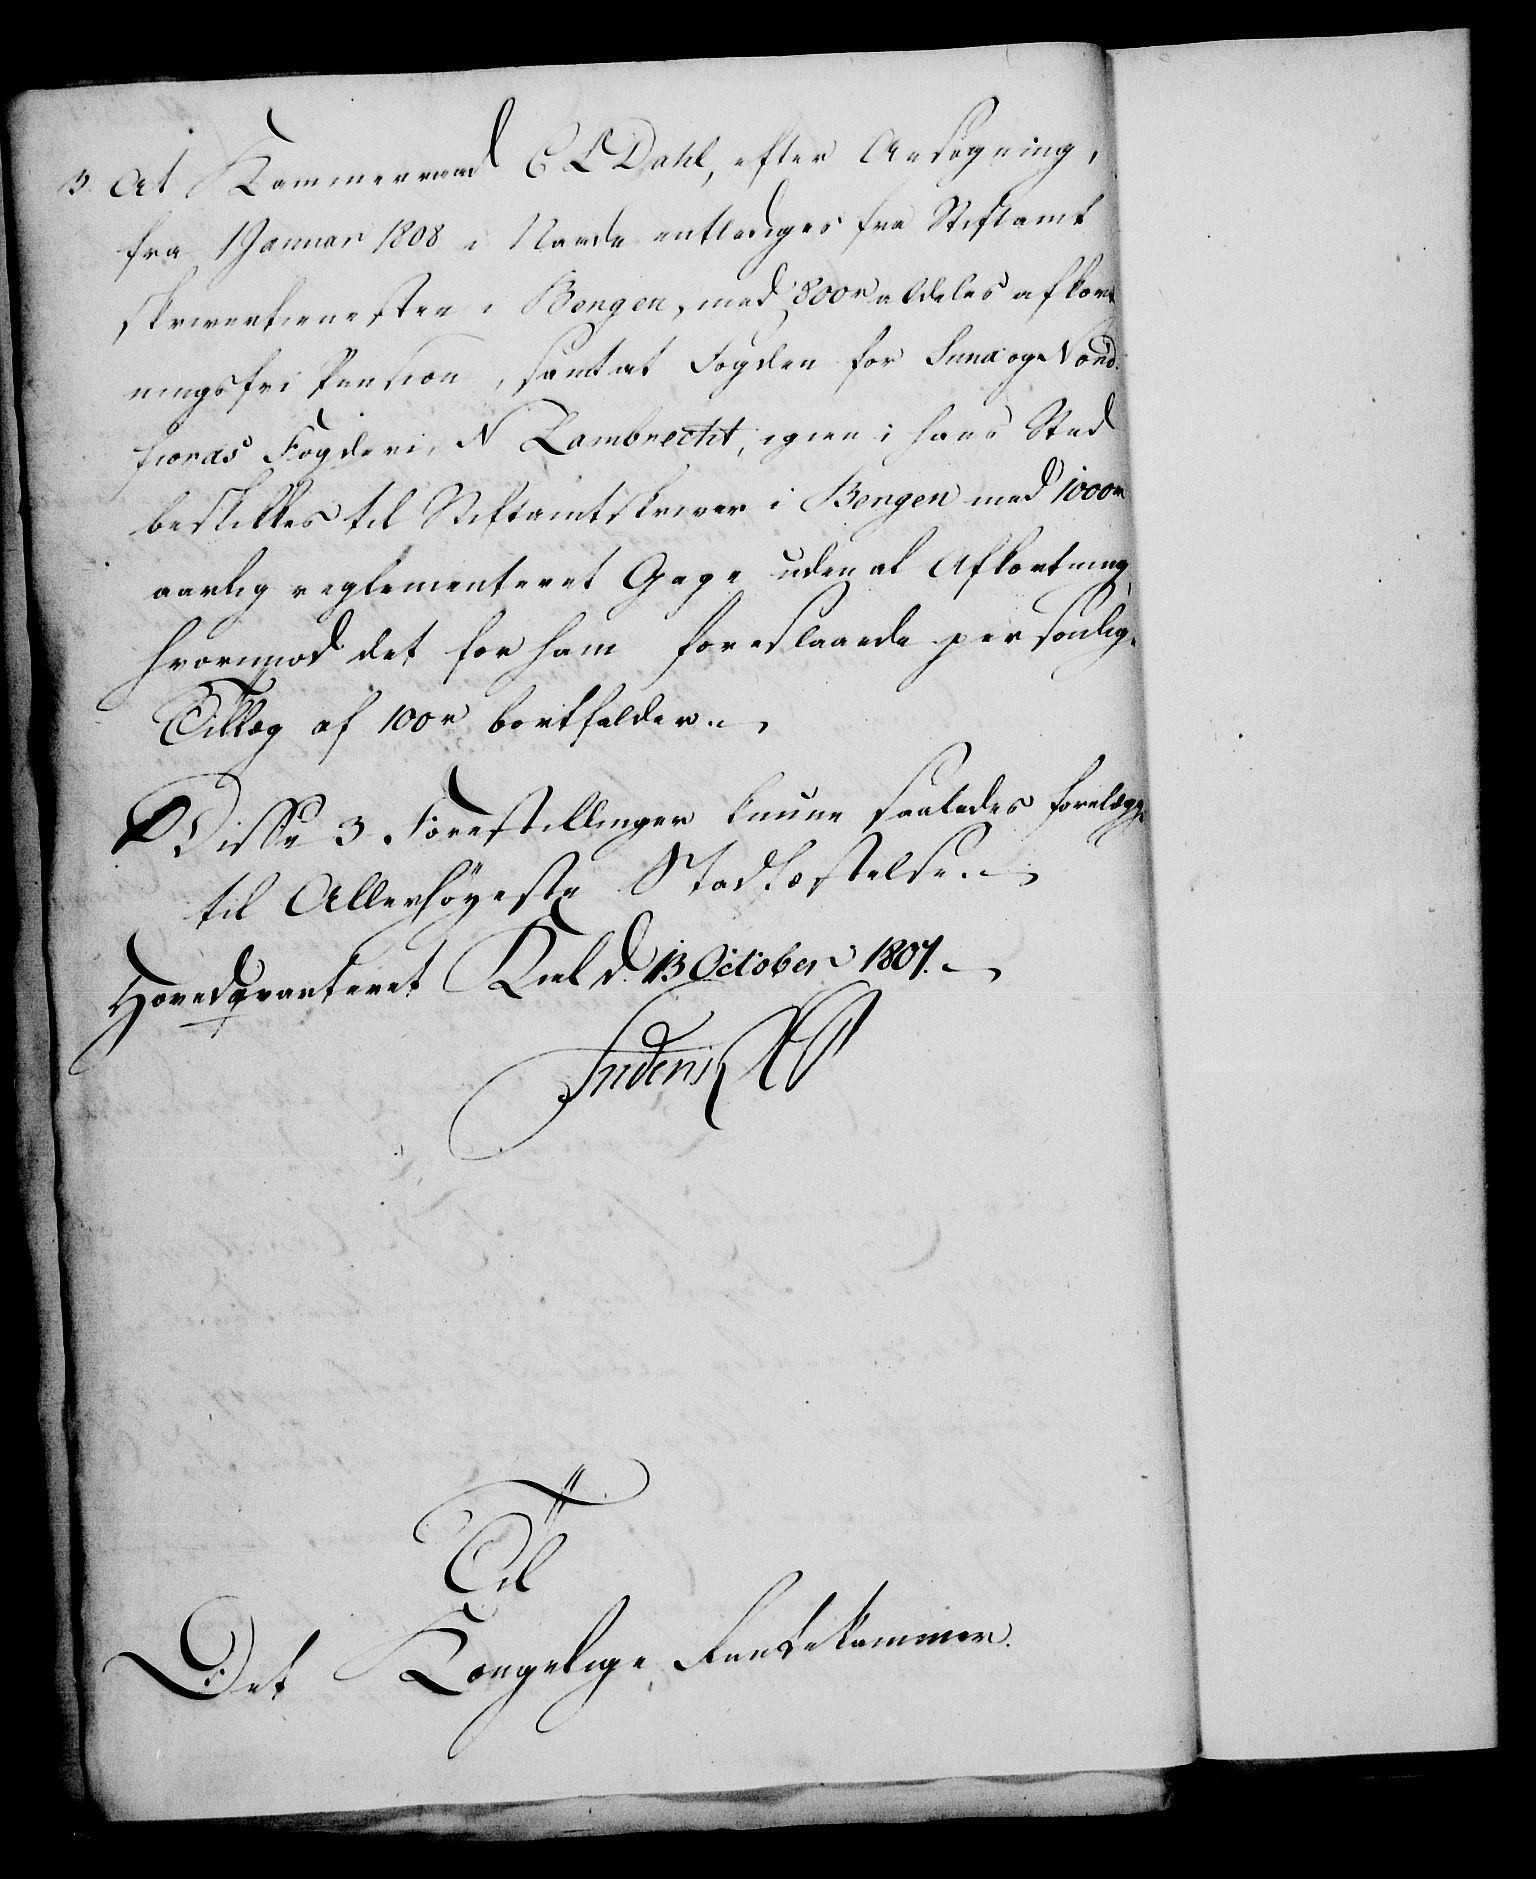 3. At Kammerraad C L Dahl, efter Ansøgning,
fra 1 Januar 1808 i Naade entlediges fra Stiftamt
skrivertienesten i Bergen, med 800 r aldeles afkort
ningsfri Pension, samt at Fogden for Sund og Nord
fiords Fogderi, N Lambrecht, igien i hans Sted
beskikkes til Stiftamtskriver i Bergen med 1000 r
aarlig reglementeret Gage uden al Afkortning,
hvorimod det for ham foreslaaede personlige
Tillæg af 100 r bortfalder.
Disse 3 Forestillinger kunne saaledes forelægges
til Allerhøyeste Stadfæstelse.
Hovedqvarteret Kiel d. 13 October 1807.
Friderich
Til
Det Kongelige Rentekammer.